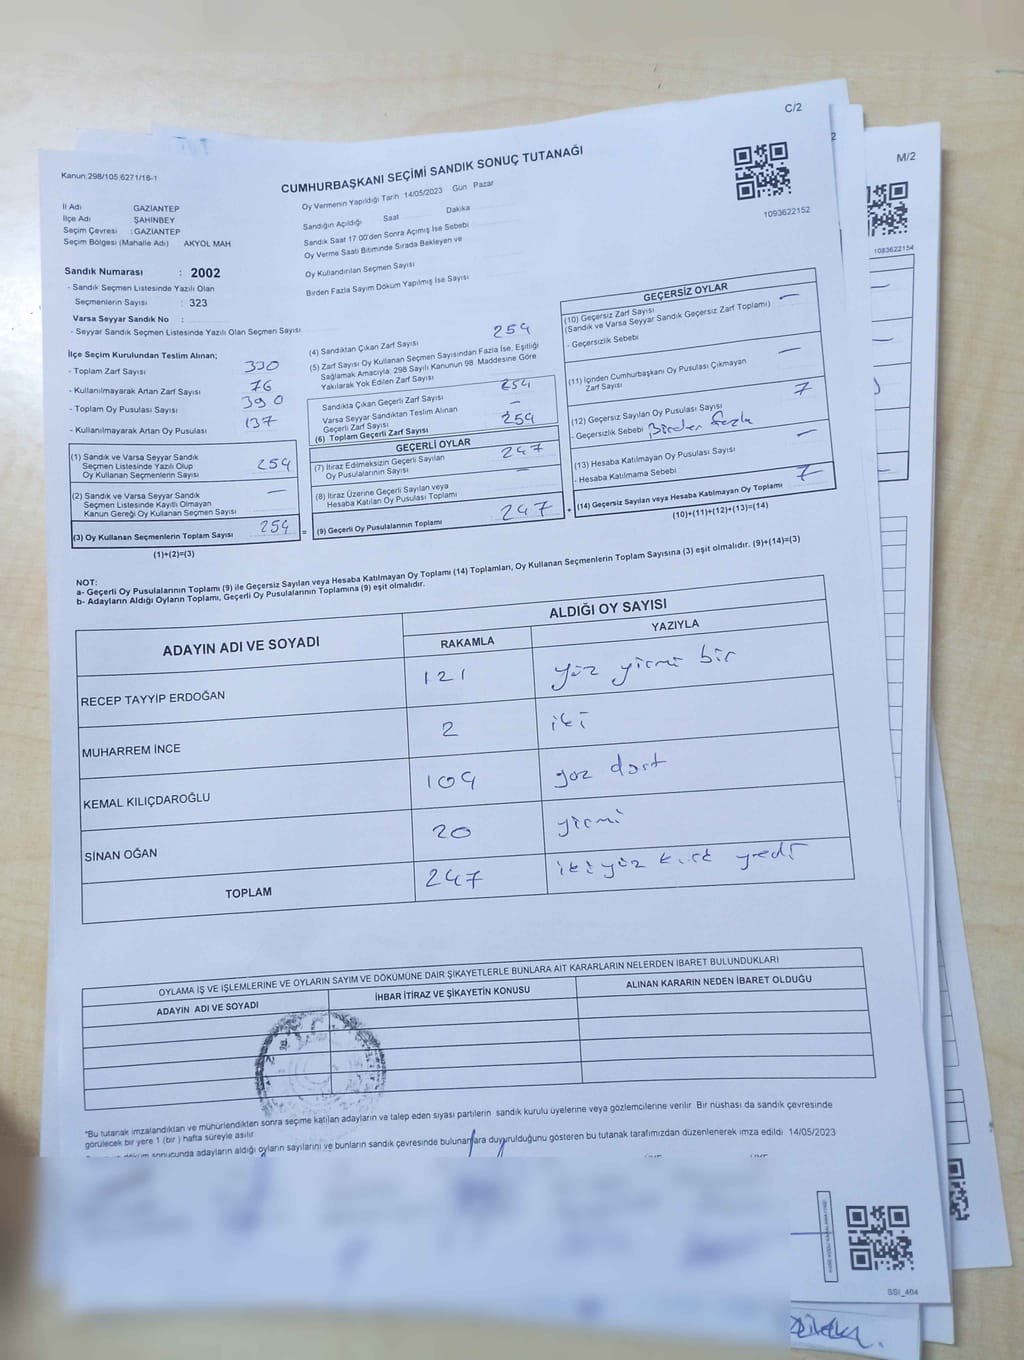 C/2
Kanun:298/105,6271/18-1
CUMHURBAŞKANI SEÇİMİ SANDIK SONUÇ TUTANAĞI
M/2
2
İl Adı GAZİANTEP
İlçe Adı ŞAHİNBEY
Seçim Çevresi :GAZİANTEP
Seçim Bölgesi (Mahalle Adı) AKYOL MAH
Oy Vermenin Yapıldığı Tarih :14/05/2023 Gün Pazar
Sandığın Açıldığı Saat Dakika
Sandık Saat 17:00'den Sonra Açımış İse Sebebi
Oy Verme Saati Bitiminde Sırada Bekleyen ve
Oy Kullandırılan Seçmen Sayısı
Birden Fazla Sayım Döküm Yapılmış İse Sayısı
1093622152
1083622154
Sandık Numarası : 2002
- Sandık Seçmen Listesinde Yazılı Olan
Seçmenlerin Sayısı : 323
Varsa Seyyar Sandık No :
- Seyyar Sandık Seçmen Listesinde Yazılı Olan Seçmen Sayısı:
İlçe Seçim Kurulundan Teslim Alınan;
- Toplam Zarf Sayısı 330
- Kullanılmayarak Artan Zarf Sayısı 76
- Toplam Oy Pusulası Sayısı 390
- Kullanılmayarak Artan Oy Pusulası 137
(1) Sandık ve Varsa Seyyar Sandık
Seçmen Listesinde Yazılı Olup
Oy Kullanan Seçmenlerin Sayısı 254
(2) Sandık ve Varsa Seyyar Sandık
Seçmen Listesinde Kayıtlı Olmayan
Kanun Gereği Oy Kullanan Seçmen Sayısı —
(3) Oy Kullanan Seçmenlerin Toplam Sayısı 254 =
(1)+(2)=(3)
(4) Sandıktan Çıkan Zarf Sayısı 254
(5) Zarf Sayısı Oy Kullanan Seçmen Sayısından Fazla İse, Eşitliği
Sağlamak Amacıyla; 298 Sayılı Kanunun 98. Maddesine Göre
Yakılarak Yok Edilen Zarf Sayısı
Sandıkta Çıkan Geçerli Zarf Sayısı 254
Varsa Seyyar Sandıktan Teslim Alınan
Geçerli Zarf Sayısı —
(6) Toplam Geçerli Zarf Sayısı 254
GEÇERLİ OYLAR
(7) İtiraz Edilmeksizin Geçerli Sayılan
Oy Pusulalarının Sayısı 247
(8) İtiraz Üzerine Geçerli Sayılan veya
Hesaba Katılan Oy Pusulası Toplamı —
(9) Geçerli Oy Pusulalarının Toplamı 247 +
GEÇERSİZ OYLAR
(10) Geçersiz Zarf Sayısı
(Sandık ve Varsa Seyyar Sandık Geçersiz Zarf Toplamı) —
- Geçersizlik Sebebi
(11) İçinden Cumhurbaşkanı Oy Pusulası Çıkmayan
Zarf Sayısı —
(12) Geçersiz Sayılan Oy Pusulası Sayısı 7
- Geçersizlik Sebebi Birden fazla
(13) Hesaba Katılmayan Oy Pusulası Sayısı —
- Hesaba Katılmama Sebebi
(14) Geçersiz Sayılan veya Hesaba Katılmayan Oy Toplamı 7
(10)+(11)+(12)+(13)=(14)
NOT:
a- Geçerli Oy Pusulalarının Toplamı (9) ile Geçersiz Sayılan veya Hesaba Katılmayan Oy Toplamı (14) Toplamları, Oy Kullanan Seçmenlerin Toplam Sayısına (3) eşit olmalıdır. (9)+(14)=(3)
b- Adayların Aldığı Oyların Toplamı, Geçerli Oy Pusulalarının Toplamına (9) eşit olmalıdır.
ADAYIN ADI VE SOYADI ALDIĞI OY SAYISI
RAKAMLA YAZIYLA
RECEP TAYYİP ERDOĞAN 121 yüz yirmi bir
MUHARREM İNCE 2 iki
KEMAL KILIÇDAROĞLU 104 yüz dört
SİNAN OĞAN 20 yirmi
TOPLAM 247 iki yüz kırk yedi
OYLAMA İŞ VE İŞLEMLERİNE VE OYLARIN SAYIM VE DÖKÜMÜNE DAİR ŞİKAYETLERLE BUNLARA AİT KARARLARIN NELERDEN İBARET BULUNDUKLARI
ADAYIN ADI VE SOYADI İHBAR İTİRAZ VE ŞİKAYETİN KONUSU ALINAN KARARIN NEDEN İBARET OLDUĞU
*Bu tutanak imzalandıktan ve mühürlendikten sonra seçime katılan adayların ve talep eden siyasi partilerin sandık kurulu üyelerine veya gözlemcilerine verilir. Bir nüshası da sandık çevresinde
görülecek bir yere 1 (bir ) hafta süreyle asılır.
döküm sonucunda adayların aldığı oyların sayılarını ve bunların sandık çevresinde bulunanlara duyurulduğunu gösteren bu tutanak tarafımızdan düzenlenerek imza edildi. 14/05/2023
SSI_404